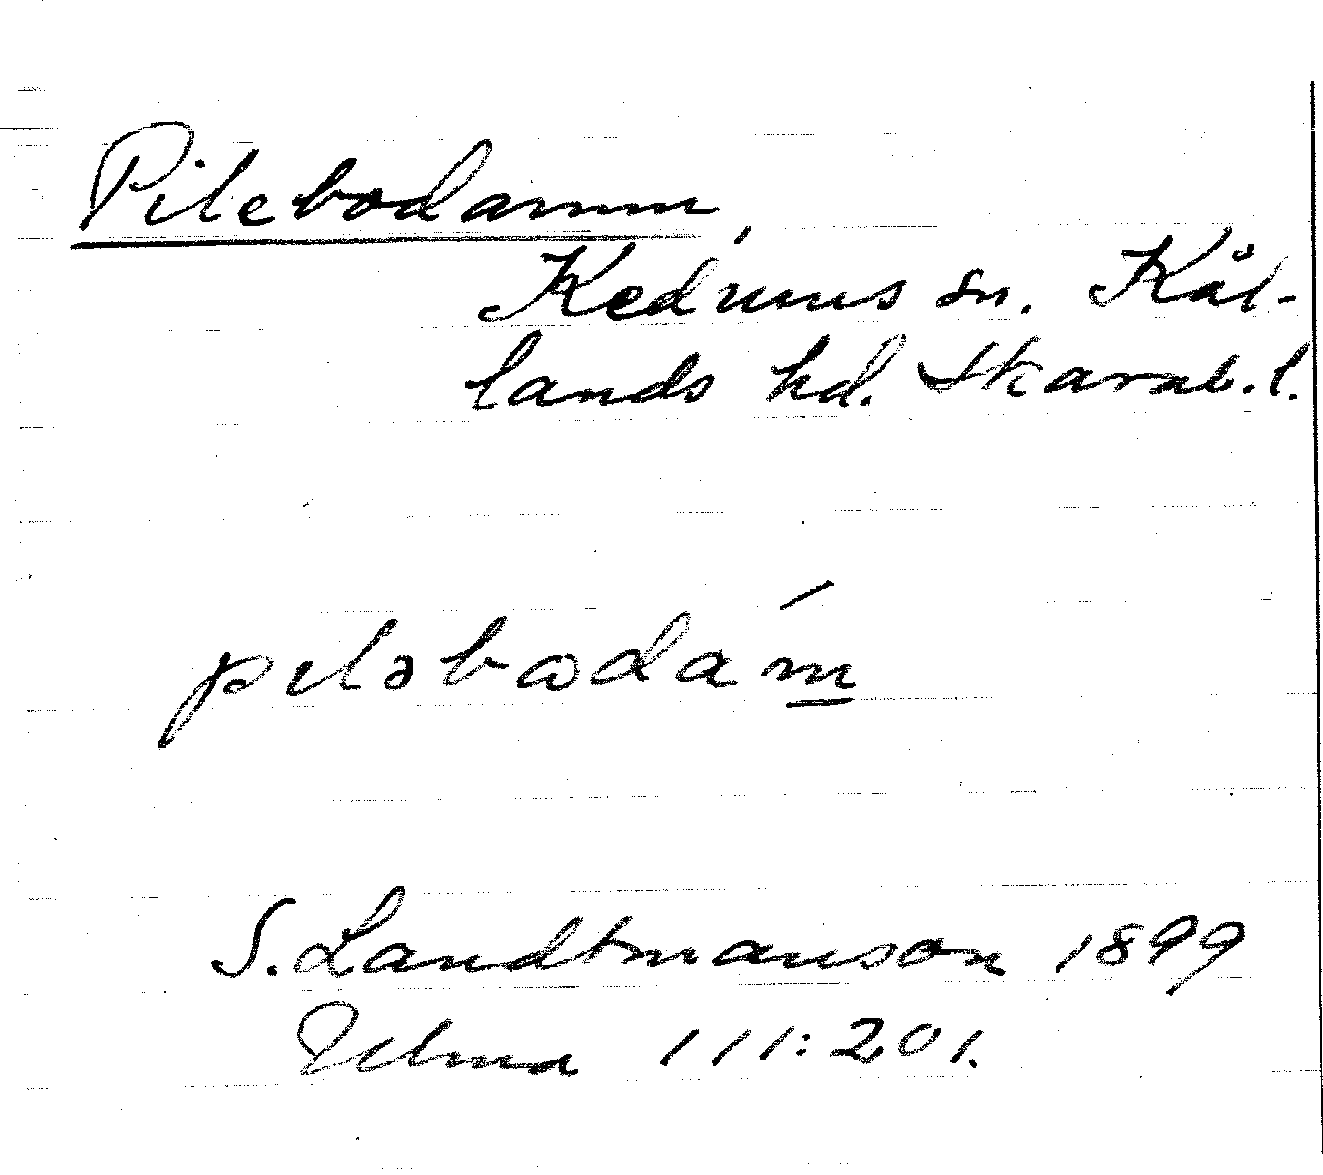 Pilebodamm,
Kedums sn. Kål-
lands hd. Skarab.l.
piləbωdaḿ̲
S. Landtmanson 1899
Ulma 111:201.